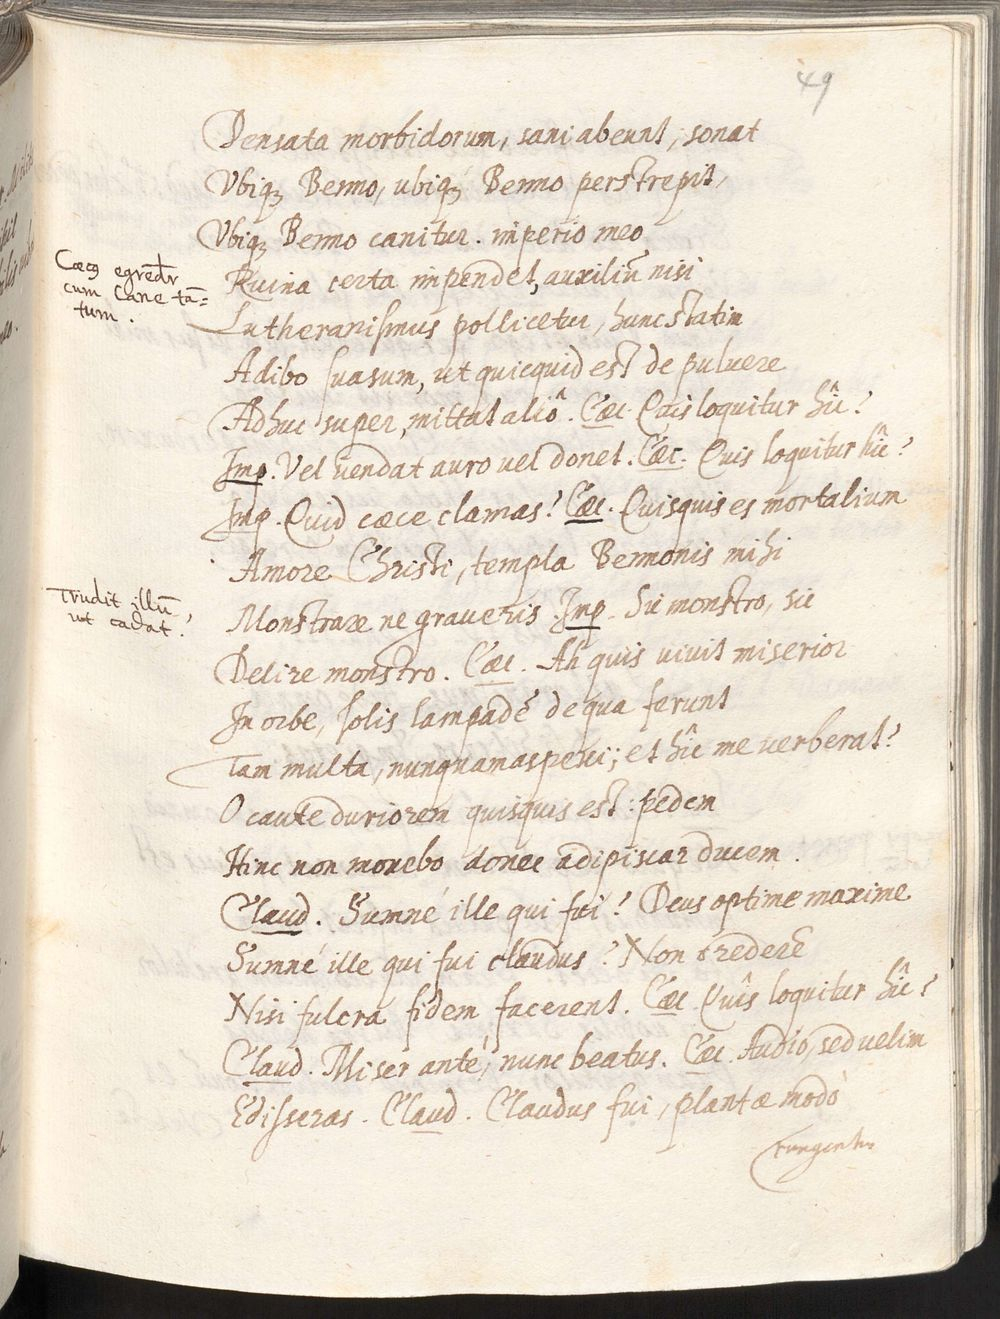 49
Densata morbidorum, sani abeunt, sonat
Vbiqꝫ Benno, ubiqꝫ Benno perstrepit,
Vbiqꝫ Benno canitur. imperio meo
Cæcꝰ egredit̄r
cum Cane tā=
tum.
Ruina certa impendet, auxiliū nisi
Lutheranismus pollicetur, hunc statim
Adibo suasum, ut quicquid est de puluere
Adhuc super, mittat aliô. Cæc. Quis loquitur hîc?
Imp. Vel vendat auro vel donet. Cæc. Quis loquitur hîc?
Imp. Quid cæce clamas? Cæc. Quisquis es mortalium
Amore Christi, templa Bennonis mihi
Trudit illū,
ut cadat.
Monstrare ne graueris. Imp. Sic monstro, sic
Delire monstro. Cæc. Ah quis vivit miserior
In orbe, solis lampadē de qua ferunt
Tam multa, nunquam aspexi; et hîc me verberat?
O caute duriorem quisquis est: pedem
Hinc non monebo donec adipiscar ducem.
Claud. Sumné ille qui fui? Deus optime maxime
Sumné ille qui fui claudus? Non crederē
Nisi fulcra fidem facerent. Cæc. Quis loquitur hîc?
Claud. Miser anté, nunc beatus. Cæc. Audio, sed velim
Edisseras. Claud. Claudus fui, plantæ modò